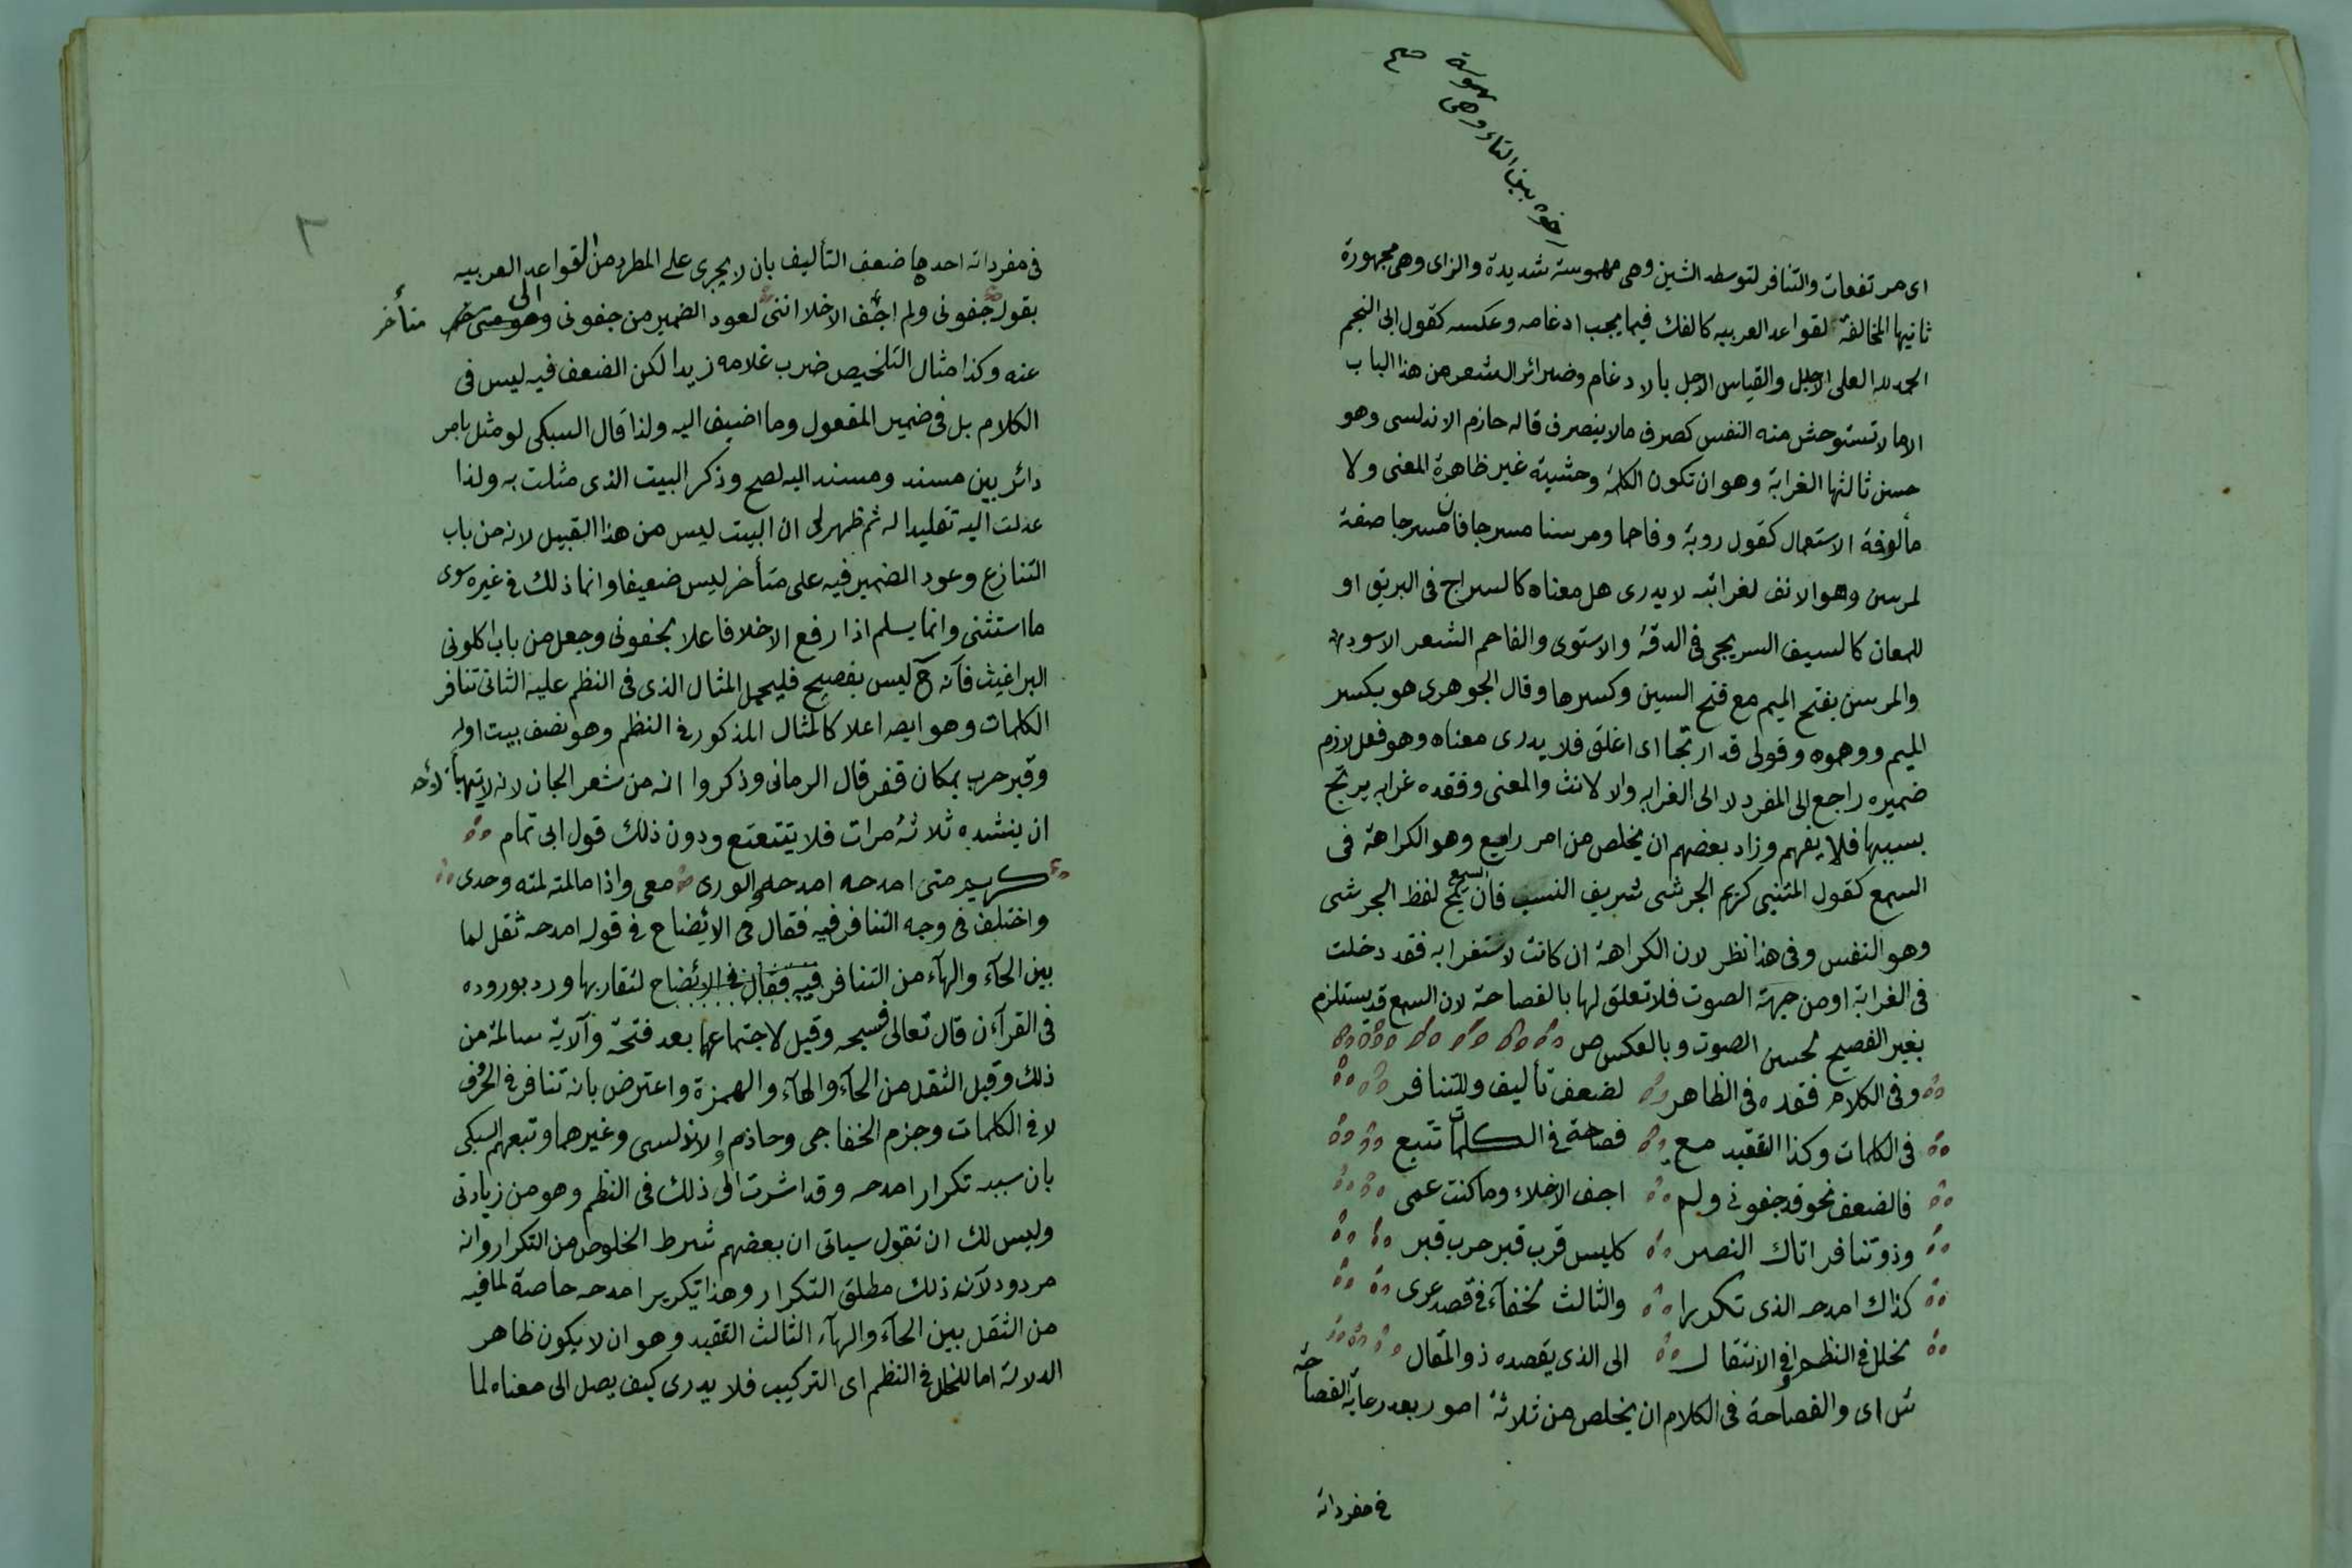 رخوة بين التاء وهى مهموسة صح
اى مرتفعات والتنافر لتوسط الشين وهى مهموسة شديدة والزاى وهى مجهورة
ثانيها المخالفة لقواعد العربيه كالفك فيما يجب ادغامه وعكسه كقول ابى النجم
الحمد لله العلى الاجلل والقياس الاجل بالادغام وضرائر الشعر من هذا الباب
الا ما لا تستوحش منه النفس كصرف ما لا ينصرف قاله حازم الاندلسى وهو
حسن ثالثها الغرابة وهو ان تكون الكلمة وحشية غير ظاهرة المعنى ولا
مألوفة الاستعمال كقول روبة وفاحما ومرسنا مسرجا فان مسرجا صفة
لمرسن وهو الانف لغرابته لا يدرى هل معناه كالسراج فى البريق او
اللمعان كالسيف السريجى فى الدقة والاستوى والفاحم الشعر الاسود
والمرسن بفتح الميم مع فتح السين وكسرها وقال الجوهرى هو بكسر
الميم ووهموه وقولى قد ارتجا اى اغلق فلا يدرى معناه وهو فعل لازم
ضميره راجع الى المفرد لا الى الغرابه والا لانث والمعنى وفقده غرابه يرتج
بسببها فلا يفهم وزاد بعضهم ان يخلص من امر رابع وهو الكراهة فى
السمع كقول المتنبى كريم الجرشى شريف النسب فان السمع يمج لفظ الجرشى
وهو النفس وفى هذا نظر لان الكراهة ان كانت لاستغرابه فقد دخلت
فى الغرابة او من جهة الصوت فلا تعلق لها بالفصاحة لان السمع قد يستلزم
بغير الفصيح لحسن الصوت وبالعكس ص
وفى الكلام فقده فى الظاهر لضعف تأليف وللتنافر
فى الكلمات وكذا التعقيد مع فصاحة فى الكلمات تتبع
فالضعف نحو قد جفونى ولم اجف الاخلاء وما كنت عمى
وذو تنافر اتاك النصر كليس قرب قبر حرب قبر
كذاك امدحه الذى تكررا والثالث لخفآء فى قصد عرى
لخلل فى النظم او فى الانتقال الى الذى يقصده ذو المقال
ش اى والفصاحة فى الكلام ان يخلص من ثلاثة امور بعد رعاية الفصاحة
فى مفرداته
٢
فى مفرداته احدها ضعف التأليف بان لا يجرى على المطرد من القواعد العربيه
بقوله جفونى ولم اجف الاخلا اننى لعود الضمير من جفونى الى متأخر
عنه وكذا مثال التلخيص ضرب غلامه زيدا لكن الضعف فيه ليس فى
الكلام بل فى ضمير المفعول وما اضيف اليه ولذا قال السبكى لو مثل بامر
دائر بين مسند ومسند اليه لصح وذكر البيت الذى مثلت به ولذا
عدلت اليه تقليدا له ثم ظهر لى ان البيت ليس من هذا القبيل لانه من باب
التنازع وعود الضمير فيه على متأخر ليس ضعيفا وانما ذلك فى غيره سوى
ما استثنى وانما يسلم اذا رفع الاخلا فاعلا بجفونى وجعل من باب اكلونى
البراغيث فآنه ح ليس بفصيح فليحمل المثال الذى فى النظم عليه الثانى تنافر
الكلمات وهو ايضه اعلا كالمثال المذكور فى النظم وهو نصف بيت اوله
وقبر حرب بمكان قفر قال الرمانى وذكروا انه من شعر الجان لانه لا يتهيأ لأحد
ان ينشده ثلاثة مرات فلا يتتعتع ودون ذلك قول ابى تمام
كريم متى امدحه امدحه والورى معى واذا ما لمته لمته وحدى
واختلف فى وجه التنافر فيه فقال فى الايضاح فى قوله امدحه ثقل لما
بين الحآء والهآء من التنافر فيه فقال فى الايضاح لتقاربها ورد بوروده
فى القرآءن قال تعالى فسبحه وقيل لاجتماعهما بعد فتحة وآلاية سالمة من
ذلك وقيل الثقل من الحآء والهآء والهمزة واعترض بانه تنافر فى الحروف
لا فى الكلمات وجزم الخفاجى وحازم الاندلسى وغيرهما وتبعهم السبكى
بان سببه تكرار امدحه وقد اشرت الى ذلك فى النظم وهو من زيادتى
وليس لك ان تقول سياتى ان بعضهم شرط الخلوص من التكرار وانه
مردود لآنه ذلك مطلق التكرار وهذا تكرير امدحه خاصة لما فيه
من الثقل بين الحآء والهآء الثالث التعقيد وهو ان لا يكون ظاهر
الدلالة اما لخلل فى النظم اى التركيب فلا يدرى كيف يصل الى معناه لما